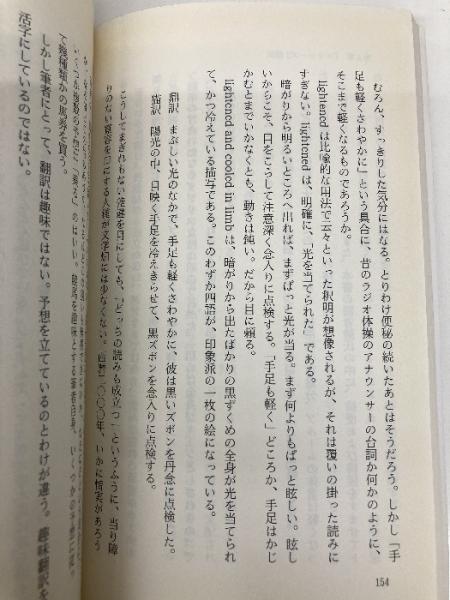 むろん、すっきりした気分にはなる。とりわけ便秘の続いたあとはそうだろう。しかし「手
足も軽くさわやかに」という具合に、昔のラジオ体操のアナウンサーの台詞か何かのように、
そこまで軽くなるものであろうか。
lightenedは比喩的な用法で云々といった釈明が想像されるが、それは覆いの掛った読みに
すぎない。lightenedは、明確に、「光を当てられた」である。
暗がりから明るいところへ出れば、まずぱっと光が当る。まず何よりもぱっと眩しい。眩し
いからこそ、目をこらして注意深く念入りに点検する。「手足も軽く」どころか、手足はかじ
かむとまでいかなくとも、動きは鈍い。だから目に頼る。
lightened and cooled in limbは、暗がりから出たばかりの黒ずくめの全身が光を当てられ
て、かつ冷えている描写である。このわずか四語が、印象派の一枚の絵になっている。
翻訳 まぶしい光のなかで、手足も軽くさわやかに、彼は黒いズボンを丹念に点検した。
猫訳 陽光の中、日映く手足を冷えきらせて、黒ズボンを念入りに点検する。
こうしてまぎれもない落差を目にしても、「どっちの読みも成立つ」というふうに、当り障
りのない寛容を口にする人種が文学畑には少なくない。西暦二〇〇〇年、いかに情実があろう
て幾種類かの馬券を買う。
しかし筆者にとって、翻訳は趣味ではない。予想を立てているのとわけが違う。趣味翻訳を
活字にしているのではない。
154